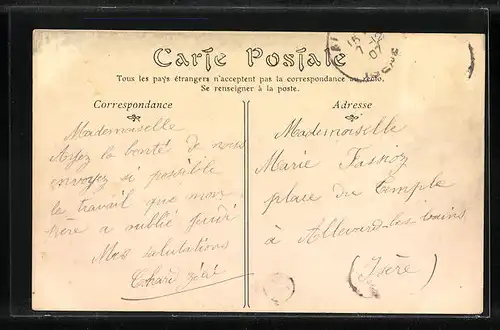 Carte Postale
Tous les pays étrangers n'acceptent pas la correspondance au recto.
Se renseigner à la poste.
Correspondance
Mademoiselle
Ayez la bonté de nous
envoyez si possible
le travail que mon
père a oublié jeudi
Mes salutations
Adresse
Mademoiselle
Marie
place du Temple
à Allevard-les-bains
(Isère)
15
7-12
07
ISÈRE